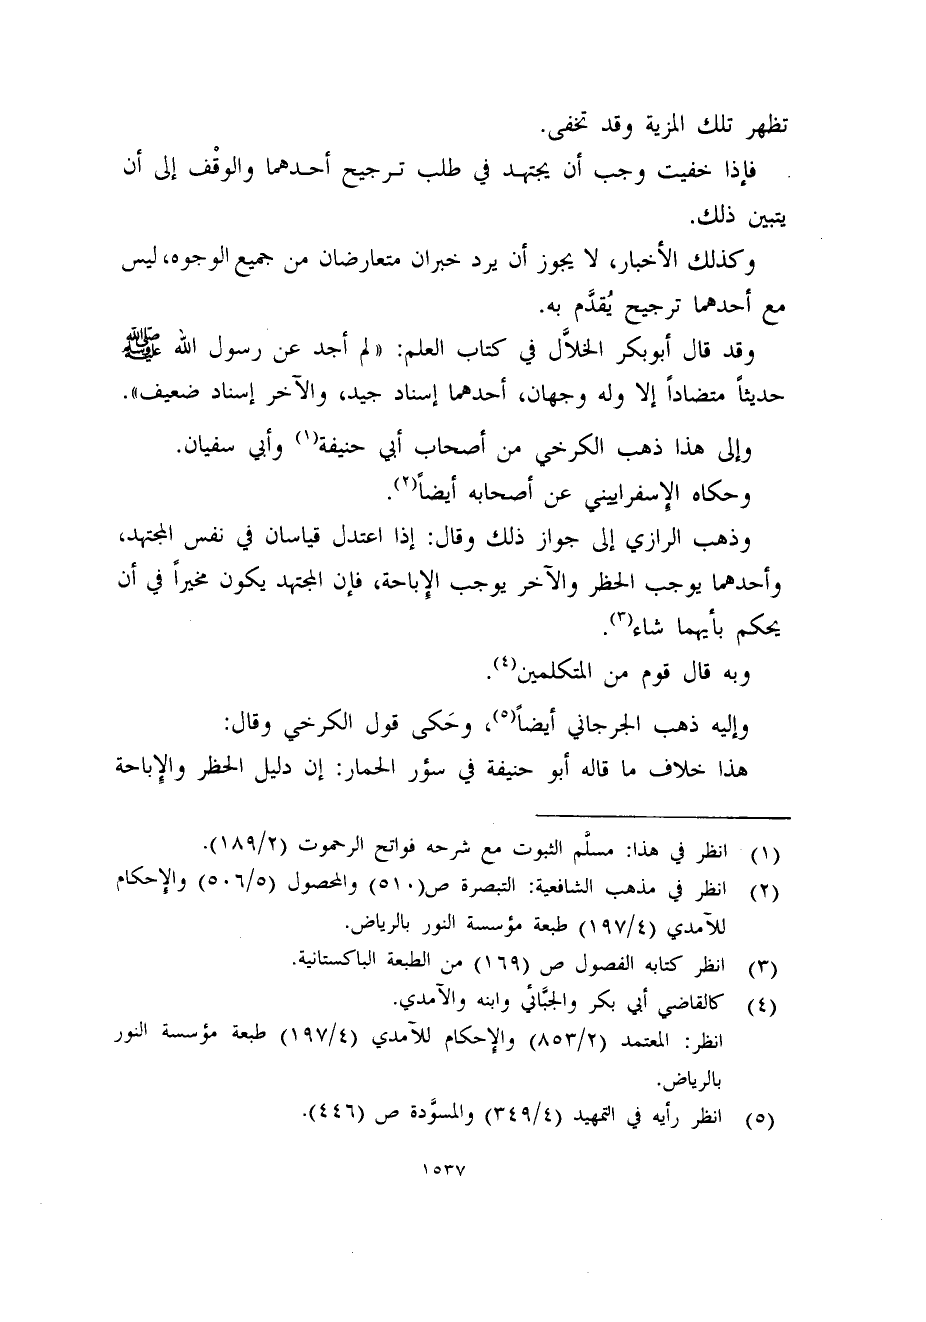 تظهر تلك المزية وقد تخفى.
فإذا خفيت وجب أن يجتهد في طلب ترجيح أحدهما والوقْف إلى أن
يتبين ذلك.
وكذلك الأخبار، لا يجوز أن يرد خبران متعارضان من جميع الوجوه، ليس
مع أحدهما ترجيح يُقدَّم به.
وقد قال أبوبكر الخلاَّل في كتاب العلم: «لم أجد عن رسول الله ﷺ
حديثاً متضاداً إلا وله وجهان، أحدهما إسناد جيد، والآخر إسناد ضعيف».
وإلى هذا ذهب الكرخي من أصحاب أبي حنيفة(١) وأبي سفيان.
وحكاه الإسفراييني عن أصحابه أيضاً(٢).
وذهب الرازي إلى جواز ذلك وقال: إذا اعتدل قياسان في نفس المجتهد،
وأحدهما يوجب الحظر والآخر يوجب الإباحة، فإن المجتهد يكون مخيراً في أن
يحكم بأيهما شاء(٣).
وبه قال قوم من المتكلمين(٤).
وإليه ذهب الجرجاني أيضاً(٥)، وحَكى قول الكرخي وقال:
هذا خلاف ما قاله أبو حنيفة في سؤر الحمار: إن دليل الحظر والإباحة
(١) انظر في هذا: مسلَّم الثبوت مع شرحه فواتح الرحموت (١٨٩/٢).
(٢) انظر في مذهب الشافعية: التبصرة ص(٥١٠) والمحصول (٥٠٦/٥) والإحكام
للآمدي (١٩٧/٤) طبعة مؤسسة النور بالرياض.
(٣) انظر كتابه الفصول ص (١٦٩) من الطبعة الباكستانية.
(٤) كالقاضي أبي بكر والجبَّائي وابنه والآمدي.
انظر: المعتمد (٨٥٣/٢) والإحكام للآمدي (١٩٧/٤) طبعة مؤسسة النور
بالرياض.
(٥) انظر رأيه في التمهيد (٣٤٩/٤) والمسوَّدة ص (٤٤٦).
١٥٣٧